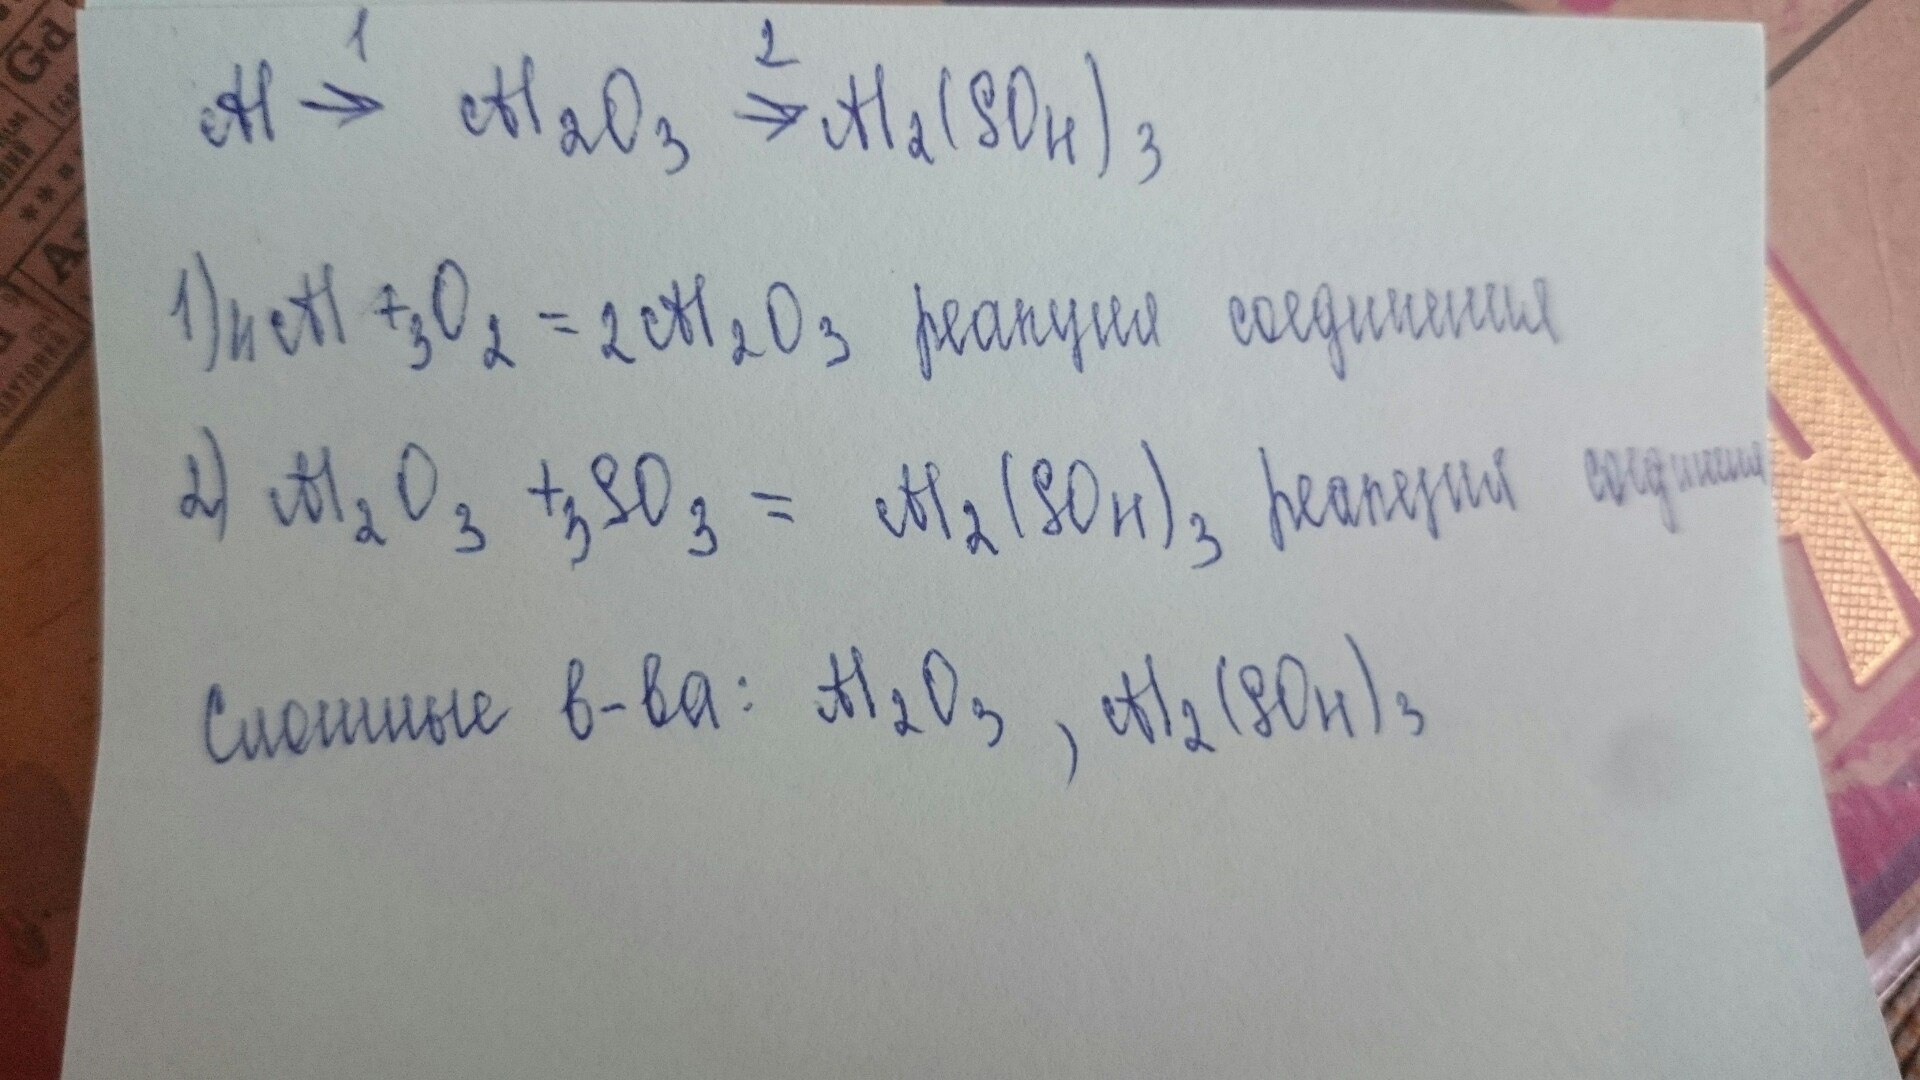 Al 1→ Al₂O₃ 2→ Al₂(SO₄)₃
1) 4Al + 3O₂ = 2Al₂O₃ реакция соединения
2) Al₂O₃ + 3SO₃ = Al₂(SO₄)₃ реакция соединения
Сложные в-ва: Al₂O₃, Al₂(SO₄)₃
Gd